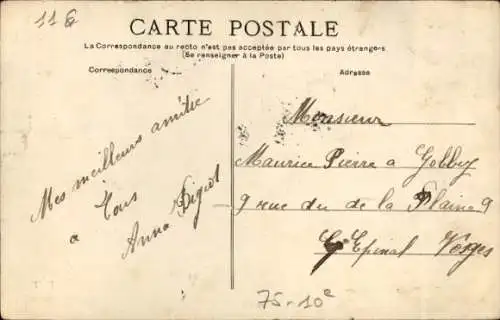 11 e
CARTE POSTALE
La Correspondance au recto n'est pas acceptée par tous les pays étrangers
(Se renseigner à la Poste)
Correspondance
Adresse
Mes meilleurs amitié
a Tous
Anna Bigot
Monsieur
Maurice Pierre a Golbey
9 rue du de la Plaine 9
Epinal Vosges
75-10e